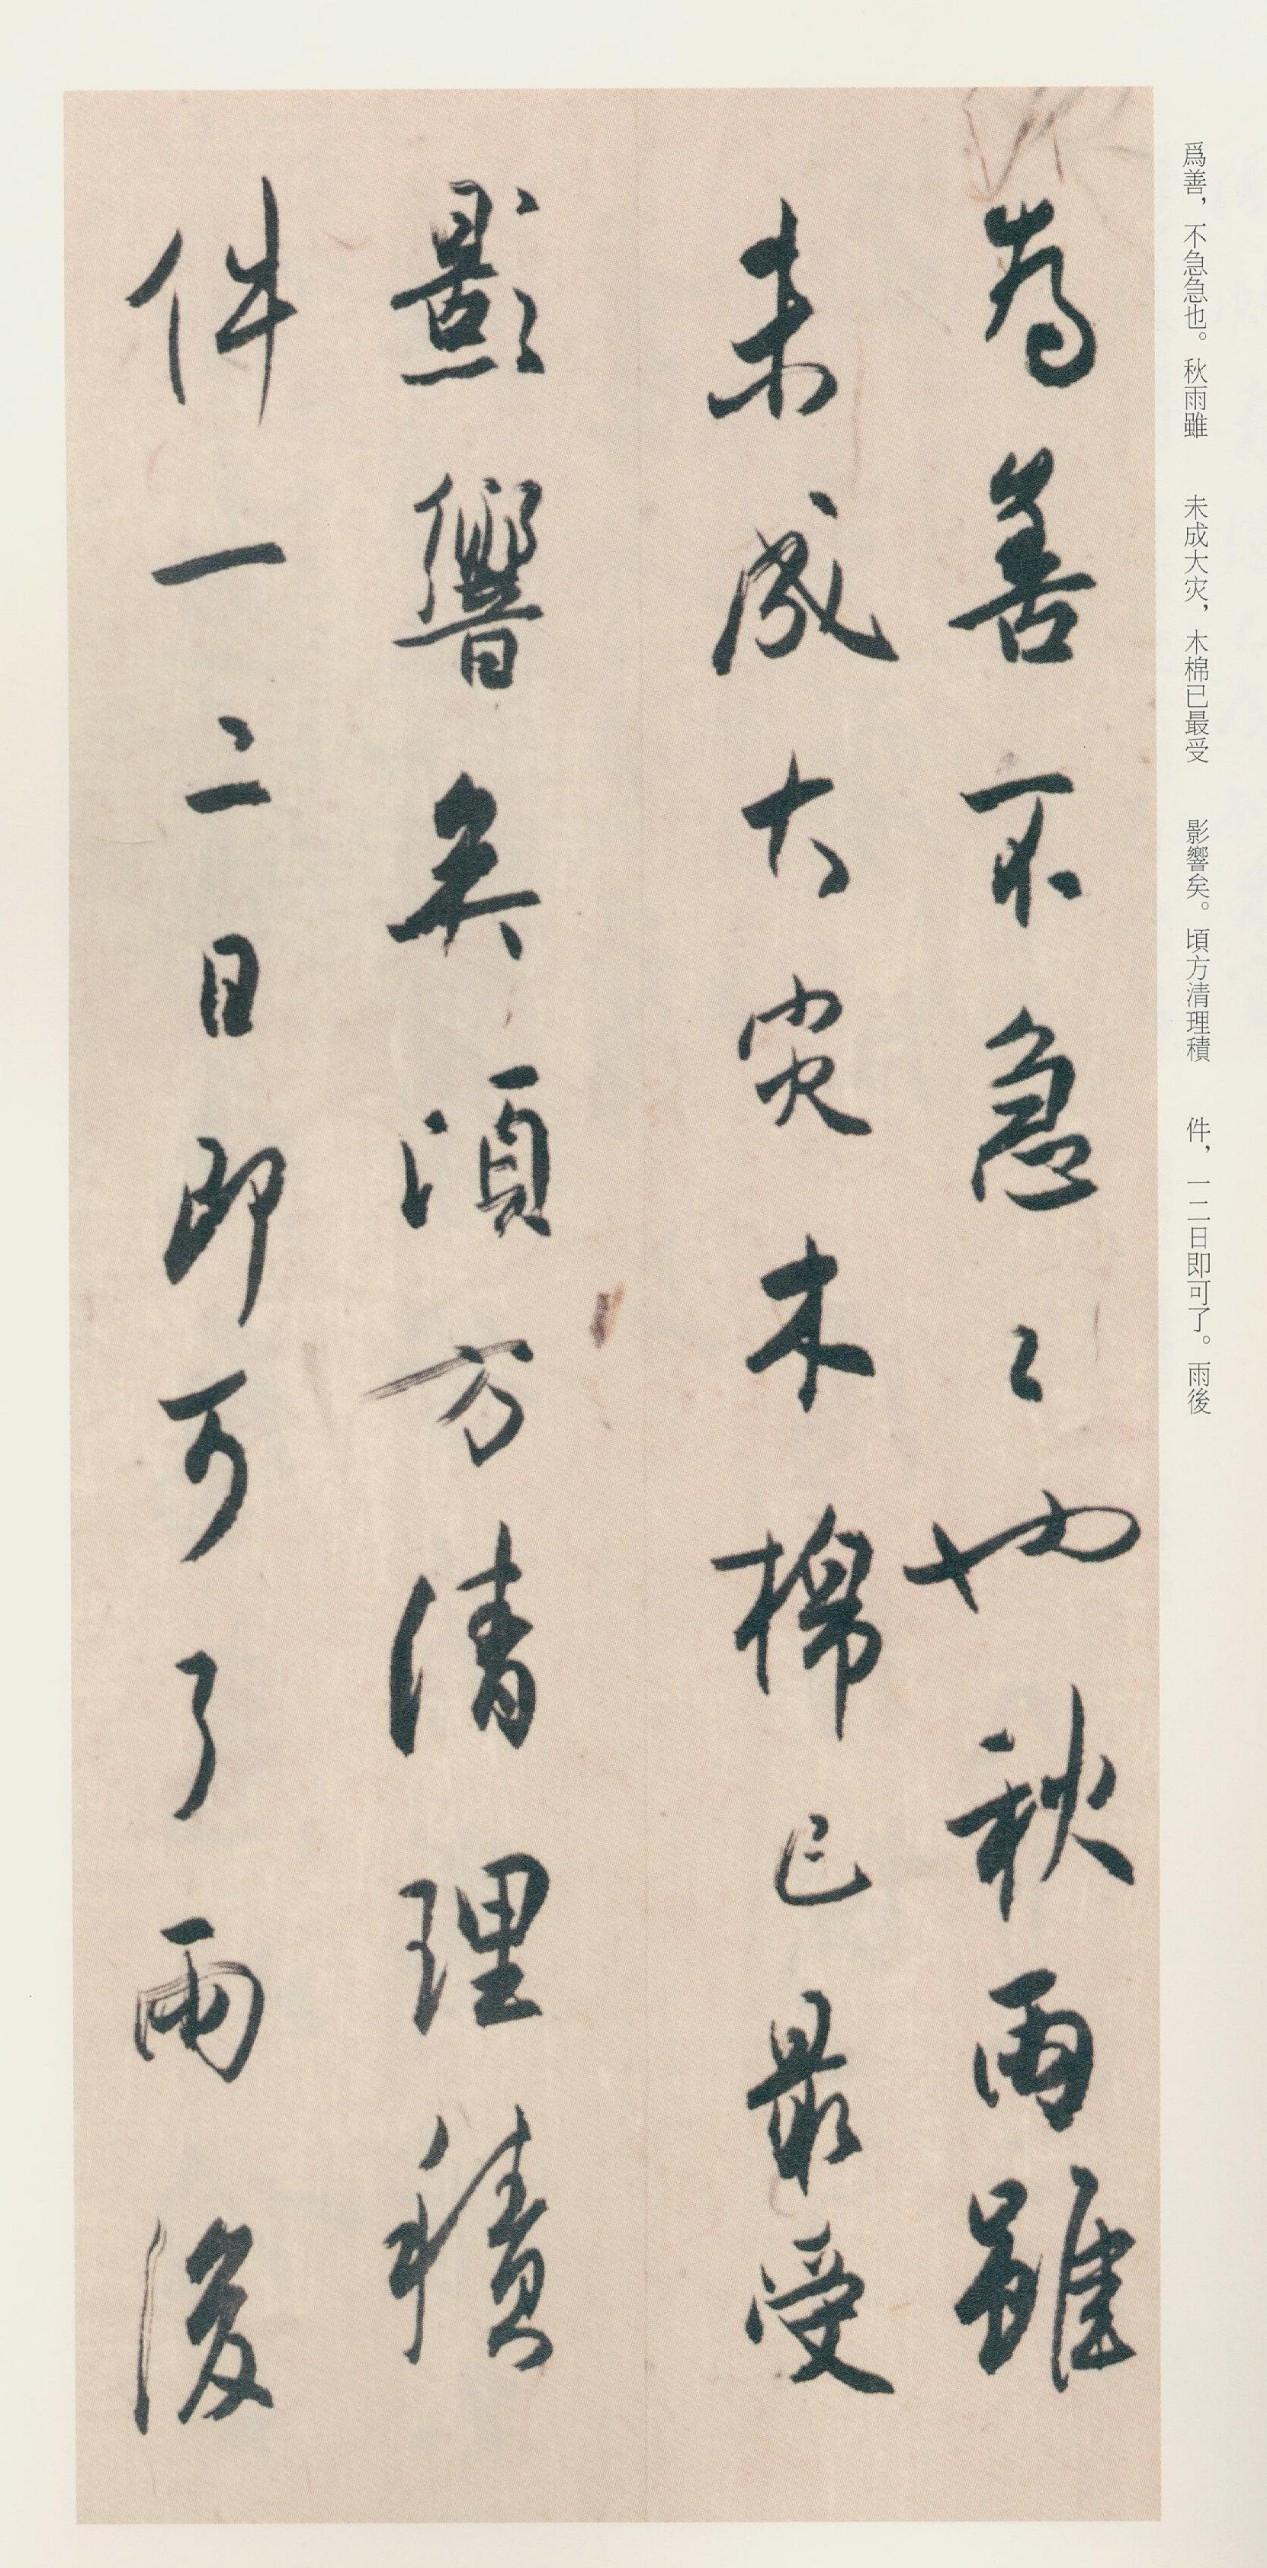 爲善，不急急也。秋雨雖　未成大灾，木棉已最受　影響矣。頃方清理積　件，一二日即可了。雨後
為善不急〻也秋雨雖
未成大灾木棉已最受
影響矣頃方清理積
件一二日即可了雨後